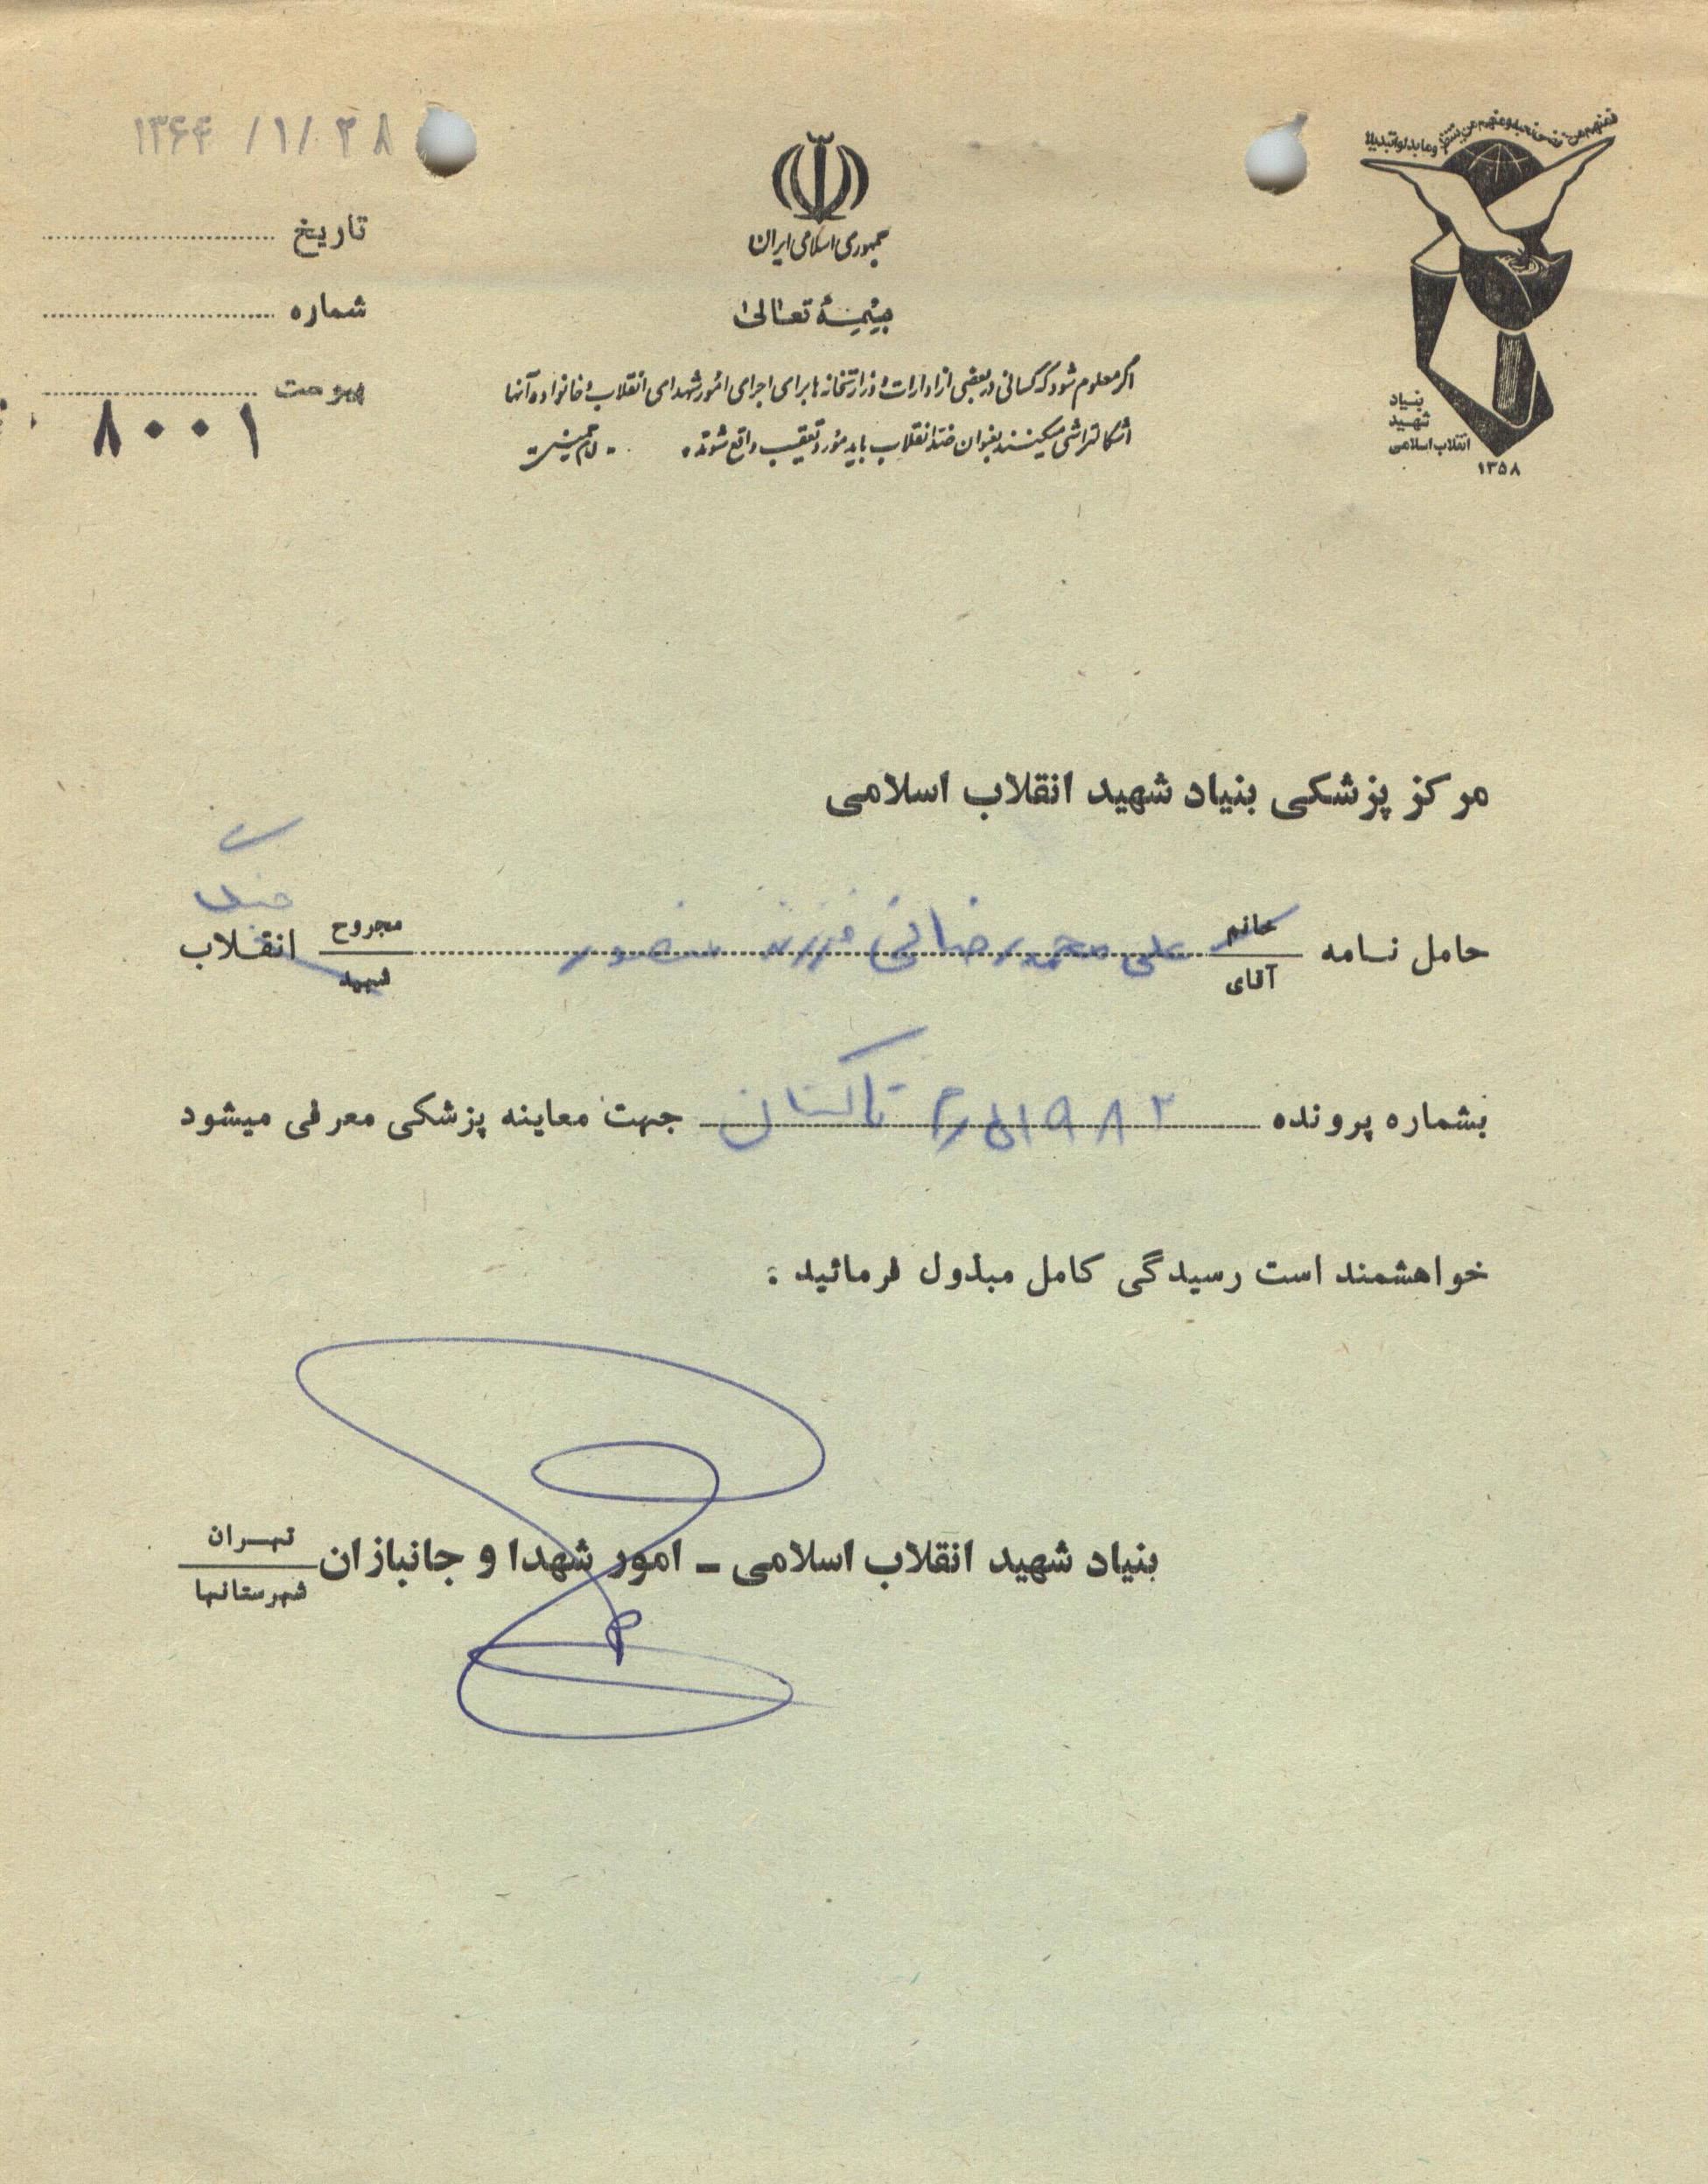 ۱۳۶۴ /۱/ ۲۸
فمنهم من قضی نحبه ومنهم من ینتظر وما بدلوا تبدیلا
جمهوری اسلامی ایران
تاریخ
بسمه تعالی
شماره
اگر معلوم شود که کسانی در بعضی از ادارات و وزارتخانه ها برای اجرای امور شهدای انقلاب و خانواده آنها
پیوست
اشکالتراشی میکنند بعنوان ضد انقلاب باید مورد تعقیب واقع شوند. امام خمینی
۸۰۰۱
بنیاد
شهید
انقلاب اسلامی
۱۳۵۸
مرکز پزشکی بنیاد شهید انقلاب اسلامی
جنگ
حامل نامه خانم آقای علی محمد رضائی فرزند منصور مجروح شهید انقلاب
بشماره پرونده ۱۹۸۲ تاکستان جهت معاینه پزشکی معرفی میشود
خواهشمند است رسیدگی کامل مبذول فرمائید :
بنیاد شهید انقلاب اسلامی ـ امور شهدا و جانبازان تهران شهرستانها